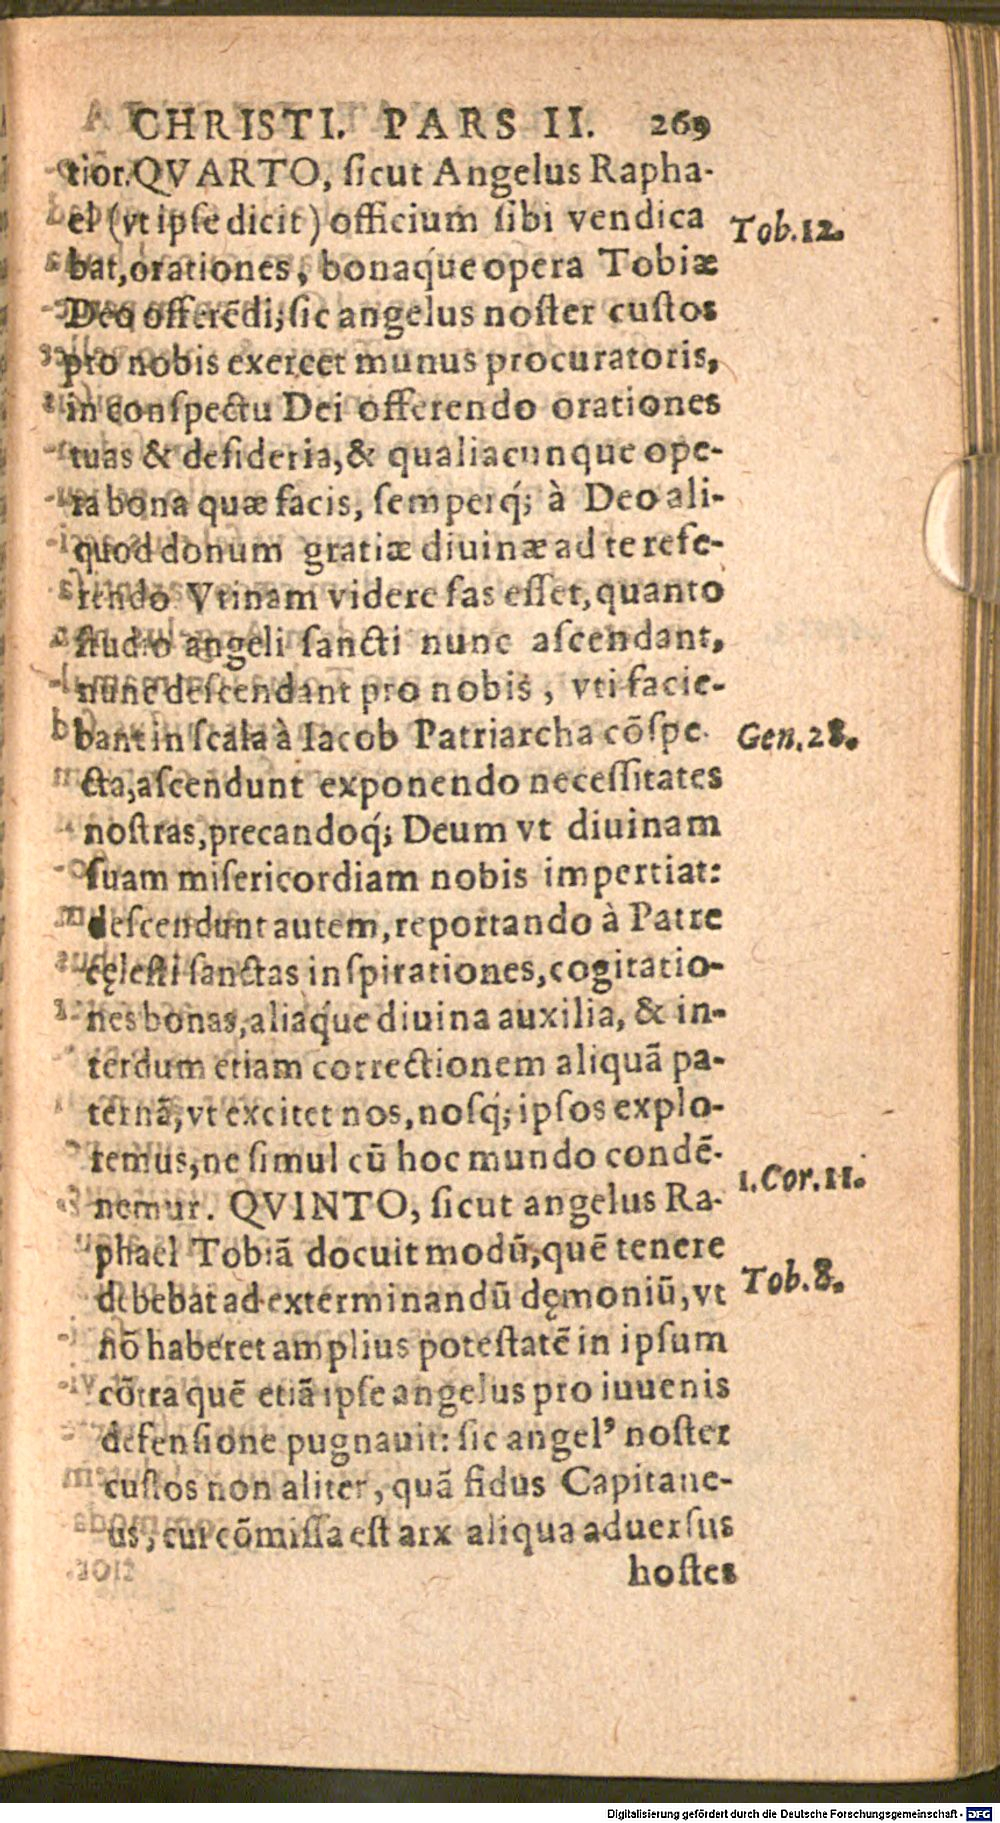 CHRISTI. PARS II. 269
tior. QVARTO, ſicut Angelus Rapha-
el (vt ipſe dicit) officium ſibi vendica
bat, orationes, bonaq́ue opera Tobiæ
Tob. 12.
Deo offerēdi; ſic angelus noſter cuſtos
pro nobis exercet munus procuratoris,
in conſpectu Dei offerendo orationes
tuas & deſideria, & qualiacunque ope-
ra bona quæ facis, ſemperq́; à Deo ali-
quod donum gratiæ diuinæ ad te refe-
rendo Vtinam videre fas eſſet, quanto
ſtudio angeli ſancti nunc aſcendant,
nunc deſcendant pro nobis, vti facie-
bant in ſcala à Iacob Patriarcha cōſpe-
Gen. 28.
cta, aſcendunt exponendo neceſſitates
noſtras, precandoq́; Deum vt diuinam
ſuam miſericordiam nobis impertiat:
deſcendunt autem, reportando à Patre
cęleſti ſanctas inſpirationes, cogitatio-
nes bonas, aliaq́ue diuina auxilia, & in-
terdum etiam correctionem aliquā pa-
ternā, vt excitet nos, noſq́; ipſos explo-
remus, ne ſimul cū hoc mundo condē-
1. Cor. 11.
nemur. QVINTO, ſicut angelus Ra-
phael Tobiā docuit modū, quē tenere
debebat ad exterminandū dęmoniū, vt
Tob. 8.
nō haberet amplius poteſtatē in ipſum
cōtra quē etiā ipſe angelus pro iuuenis
defenſione pugnauit: ſic angelꝰ noſter
cuſtos non aliter, quā fidus Capitane-
us, cui cōmiſſa eſt arx aliqua aduerſus
hoſtes
Digitalisierung gefördert durch die Deutsche Forschungsgemeinschaft - DFG